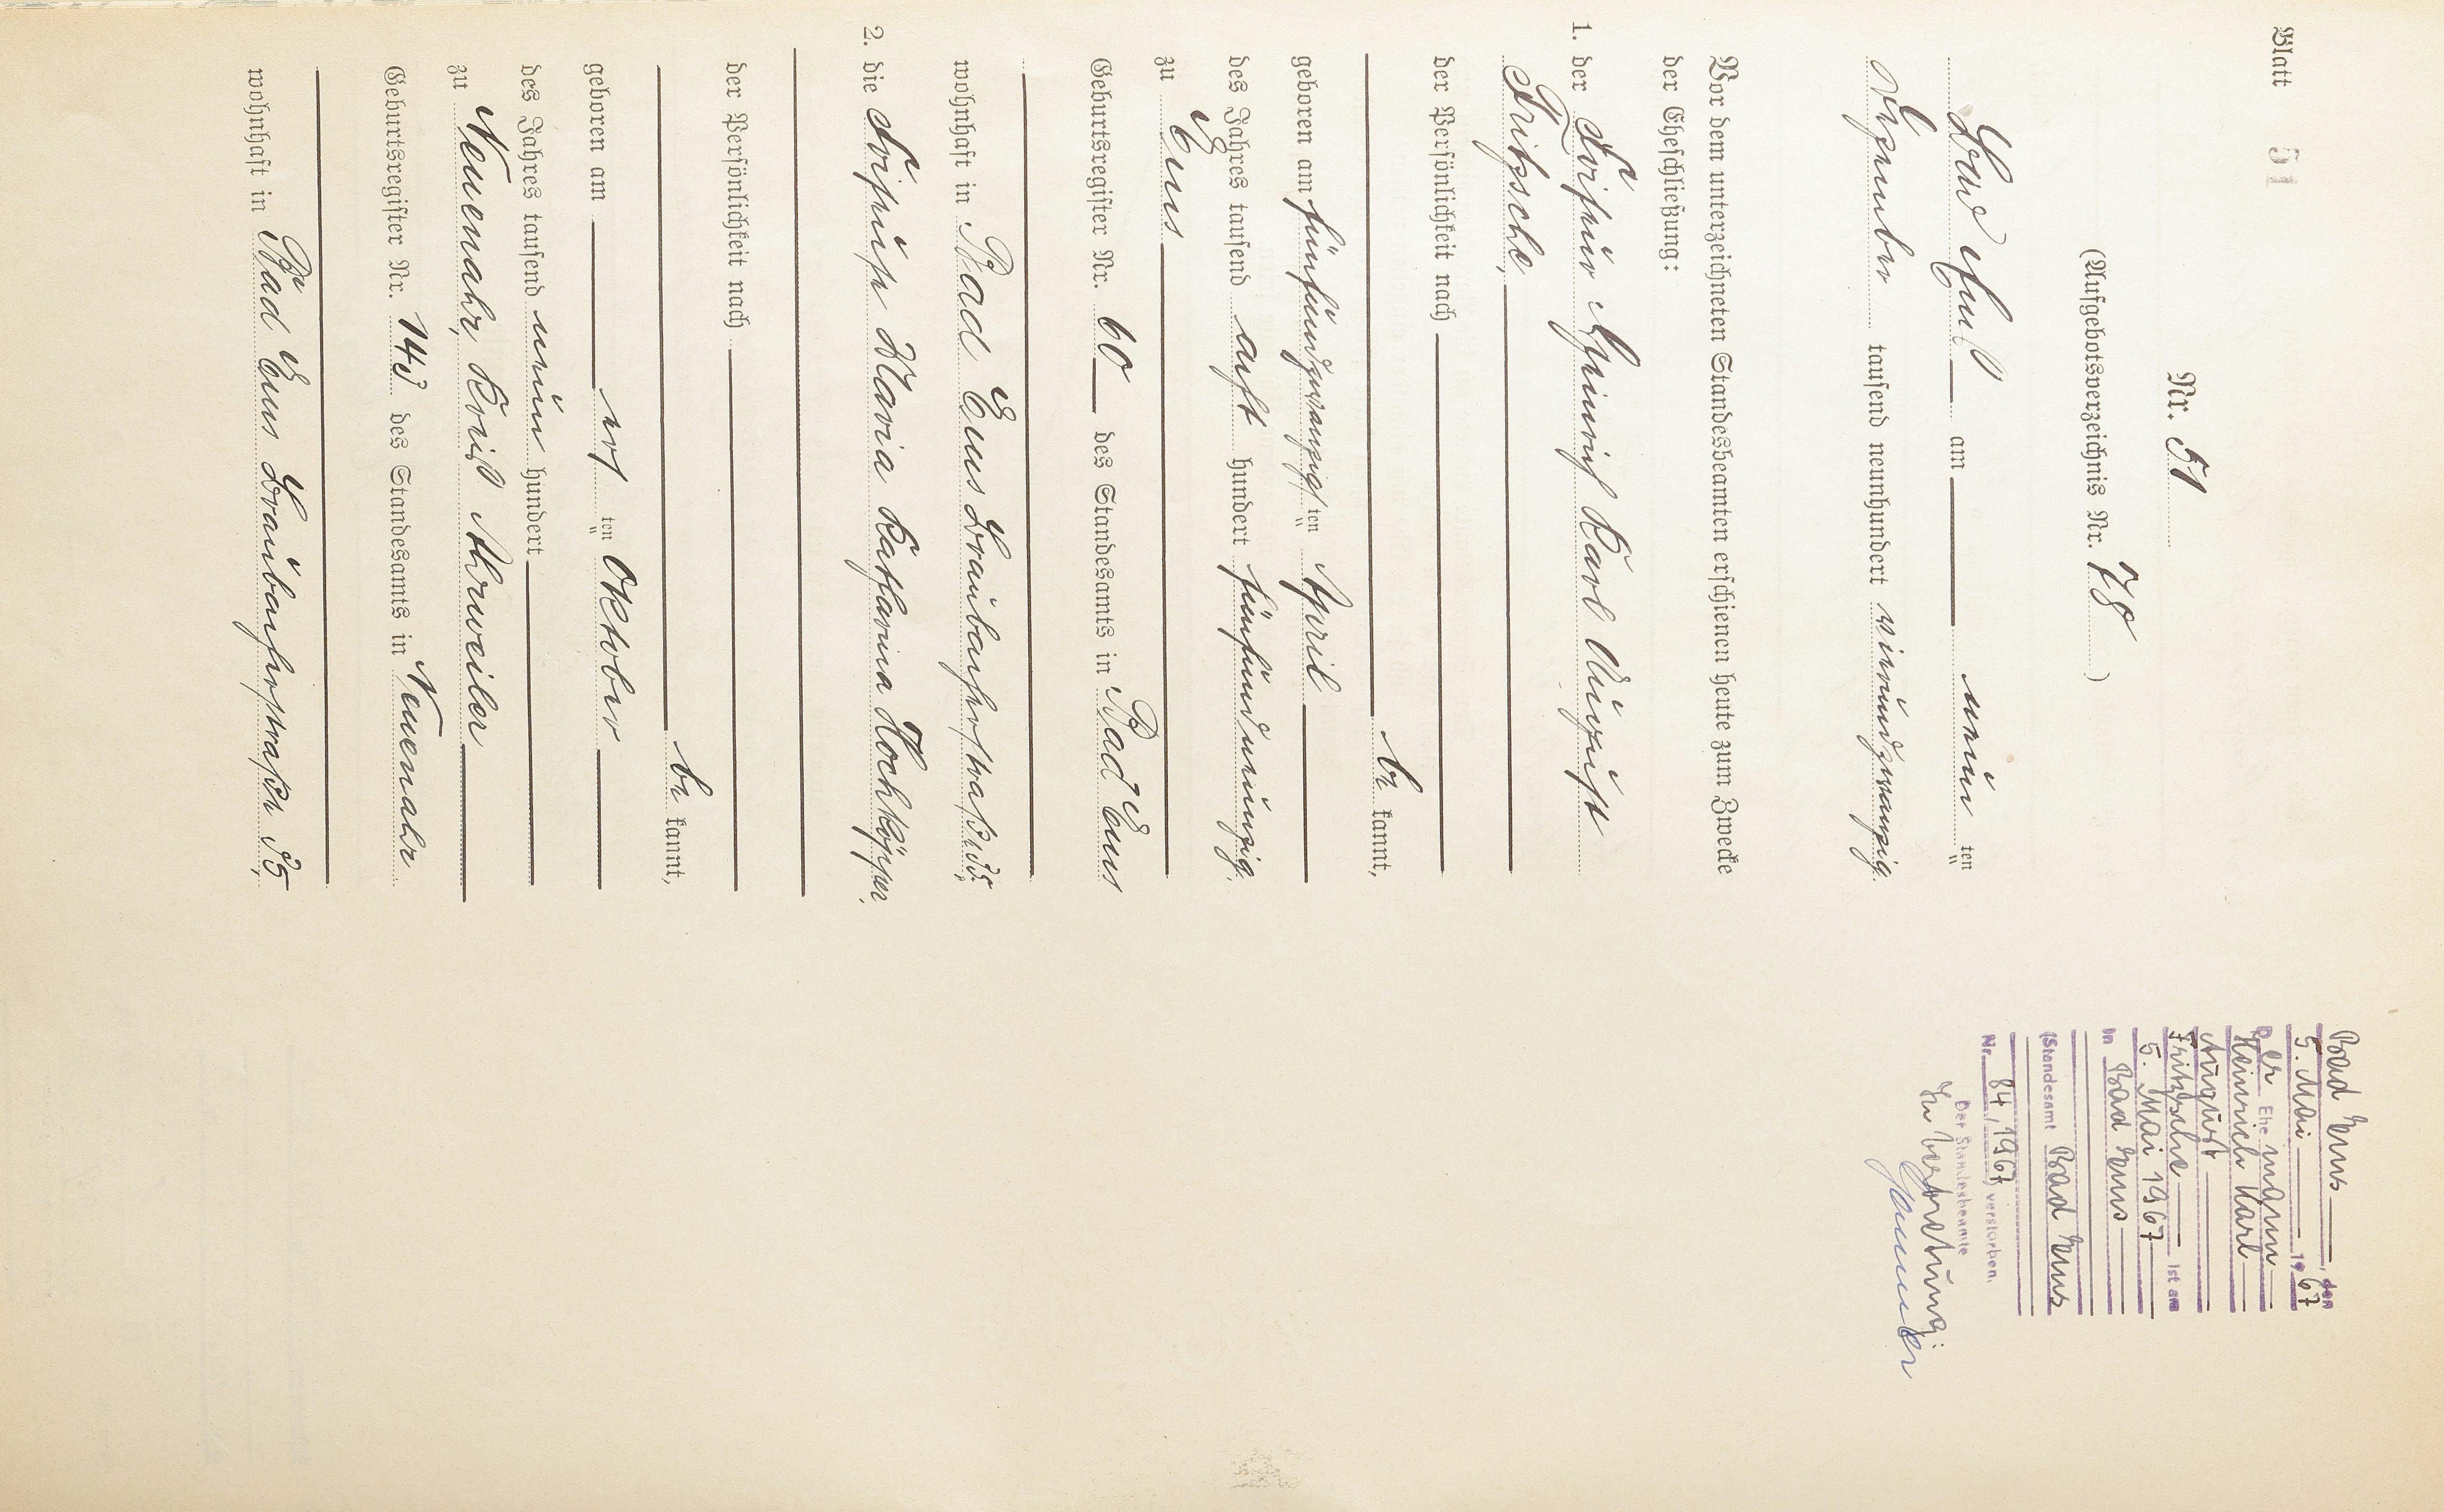 Blatt 51
Nr. 51
(Aufgebotsverzeichnis Nr. 78)
Bad Ems am neun ten
Dezember tausend neunhundert vierundzwanzig.
Vor dem unterzeichneten Standesbeamten erschienen heute zum Zwecke
der Eheschließung:
1. der Friseur Heinrich Karl August
Fritzsche,
der Persönlichkeit nach
be kannt,
geboren am fünfundzwanzigsten April
des Jahres tausend acht hundert fünfundneunzig
zu Ems
Geburtsregister Nr. 60 des Standesamts in Bad Ems
wohnhaft in Bad Ems Braubacherstraße 35,
2. die Friseuse Maria Katharina Hochköpper,
der Persönlichkeit nach
be kannt,
geboren am ersten Oktober
des Jahres tausend neun hundert
zu Neuenahr, Kreis Ahrweiler
Geburtsregister Nr. 143 des Standesamts in Neuenahr
wohnhaft in Bad Ems Braubacherstraße 35,
Bad Ems, den
5. Mai 1967
Der Ehemann
Heinrich Karl
August
Fritzsche ist am
5. Mai 1967
in Bad Ems
(Standesamt Bad Ems
Nr. 84/1967) verstorben.
Der Standesbeamte
In Vertretung: